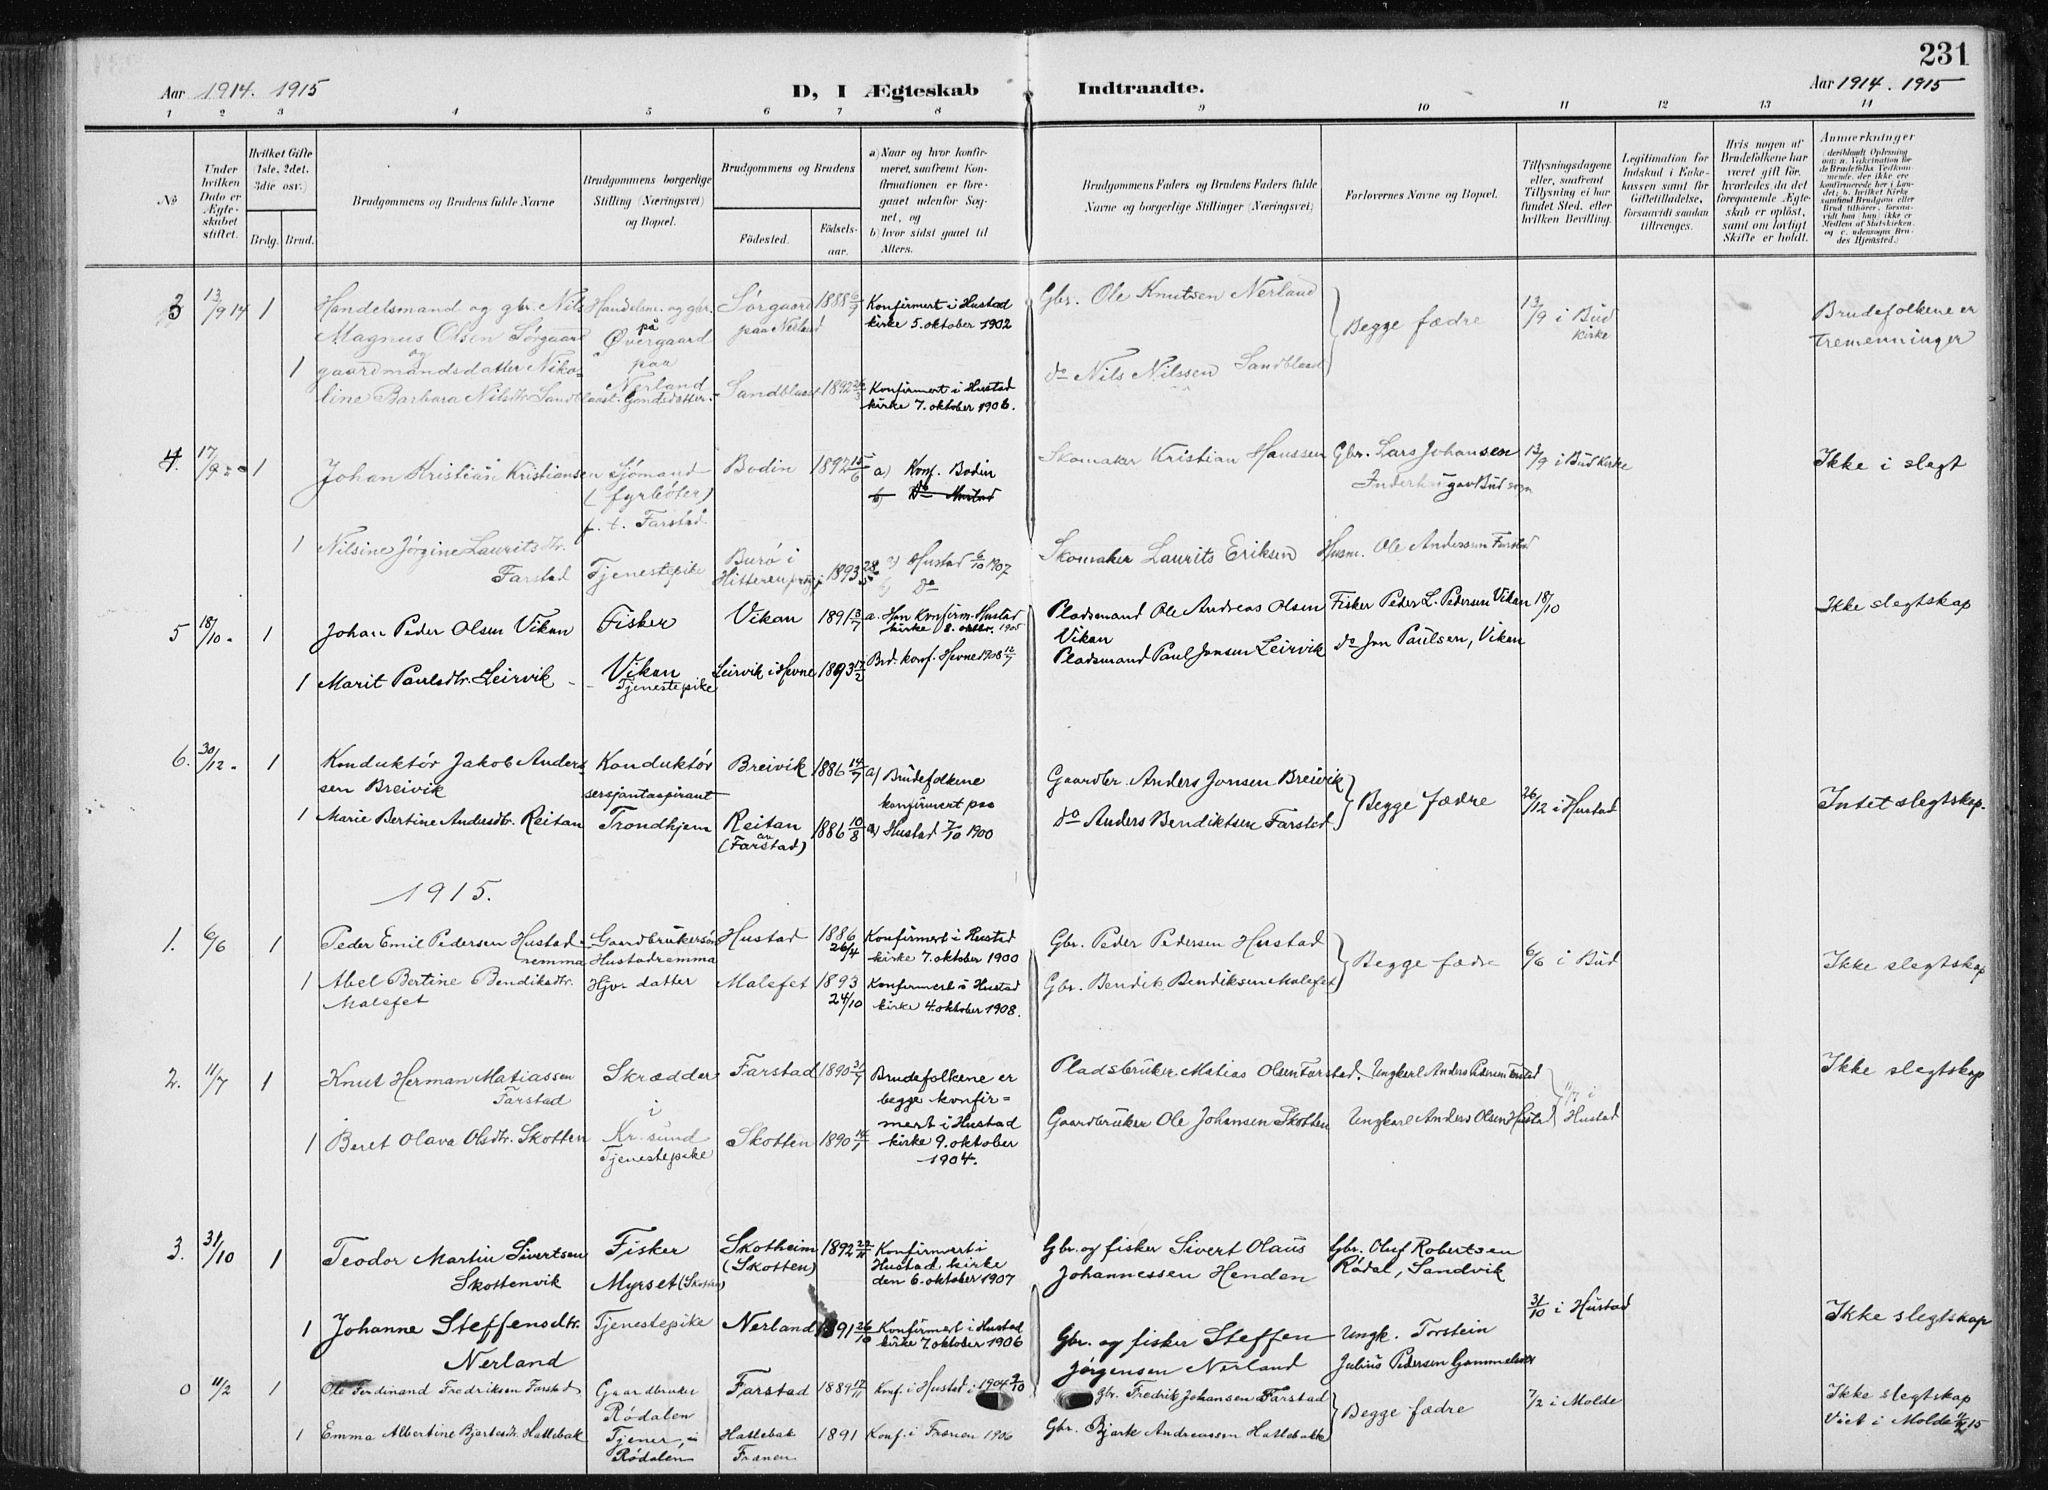 231
Aar 1914. 1915
D, I Ægteskab
Indtraadte.
Aar 1914. 1915
1 2 3 4 5 6 7 8 9 10 11 12 13 14
No
Under hvilken Dato er Ægteskabet stiftet.
Hvilket Gifte (1ste, 2det, 3die osv.)
Brdg. Brud.
Brudgommens og Brudens fulde Navne
Brudgommens borgerlige Stilling (Næringsvei) og Bopæl.
Brudgommens og Brudens
Födested.
Födselsaar.
a) Naar og hvor konfirmeret, saafremt Konfirmationen er foregaaet udenfor Sognet, og
b) hvor sidst gaaet til Alters.
Brudgommens Faders og Brudens Faders fulde Navne og borgerlige Stillinger (Næringsvei)
Forlovernes Navne og Bopæl.
Tillysningsdagene eller, saafremt Tillysning ei har fundet Sted, efter hvilken Bevilling.
Legitimation for Indskud i Enkekassen samt for Giftetilladelse, forsaavidt saadan tiltrænges.
Hvis nogen af Brudefolkene har været gift för, hvorledes da det foregaaende Ægteskab er oplöst, samt om lovligt Skifte er holdt.
Anmerkninger
(deriblandt Oplysning om: a. Vakcination for de Brudefolks Vedkommende, der ikke ere konfirmerede her i Landet; b. hvilket Kirkesamfund Brudgom eller Brud tilhörer, forsaavidt han (hun) ikke er Medlem af Statskirken, og c. udensogns Brudes Hjemsted.)
3 13/9 14 1 Handelsmand og gbr. Nils Magnus Olsen Sørgaard
Handelsm. og gbr. på Øvergaard paa Nerland
Sørgaard paa Nerland 1888 6/9
Konfirmert i Hustad kirke 5. oktober 1902
Gbr. Ole Knutsen Nerland
Begge fædre
13/9 i Bud kirke
Brudefolkene er tremenninger
1 og gaardmandsdatter Nikoline Barbara Nilsdtr. Sandblaast. Gaardsdatter.
Sandblaast 1892 26/3
Konfirmert i Hustad kirke 7. oktober 1906.
do Nils Nilssen Sandblaast
4. 17/9 1 Johan Kristian Kristiansen
Sjømand (fyrbøter) p. t. Farstad
Bodin 1892 15/6
a) Konf. Bodin
b) Do Hustad
Skomaker Kristian Hanssen
Gbr. Lars Johansen Inderhaug av Bud sogn
13/9 i Bud kirke
Ikke i slegt
1 Nilsine Jørgine Lauritsdtr. Farstad
Tjenestepike
Burø i Hitteren prgj. 1893 28/5
a) Hustad 6/10 1907
b) Do
Skomaker Laurits Eriksen
Husm. Ole Anderssen Farstad
5 18/10 1 Johan Peder Olsen Vikan
Fisker Vikan
Vikan 1891 3/7
a. Han Konfirm. Hustad kirke 8. oktbr. 1905
Pladsmand Ole Andreas Olsen Vikan
Fisker Peder L. Pedersen Vikan
18/10
Ikke slegtskap
1 Marit Paulsdtr. Leirvik
Tjenestepike
Leirvik i Hevne 1893 17/2
Brd. konf. Hevne 1908 12/7
Pladsmand Paul Jonsen Leirvik
do Jon Paulsen, Vikan
6. 30/12 1 Konduktør Jakob Anderssen Breivik
Konduktør sersjantaspirant Trondhjem
Breivik 1886 14/7
a) Brudefolkene konfirmert paa
Gaardbr. Anders Jonsen Breivik
Begge fædre
26/12 i Hustad
Intet slegtskap.
1 Marie Bertine Andersdtr. Reitan
Reitan av (Farstad) 1886 10/8
a) Hustad 7/10 1900
do Anders Bendiktsen Farstad
1915.
1. 6/6 1 Peder Emil Pedersen Hustadremma
Gaardbrukersøn Hustadremma
Hustad 1886 26/4
Konfirmert i Hustad kirke 7. oktober 1900
Gbr. Peder Pedersen Hustad
Begge fædre
6/6 i Bud
Ikke slegtskap
1 Abel Bertine Bendiksdtr. Malefet
Hjv. datter
Malefet 1893 24/10
Konfirmert i Hustad kirke 4. oktober 1908.
Gbr. Bendik Bendiksen Malefet
2. 11/7 1 Knut Herman Matiassen Farstad
Skrædder i Kr. sund
Farstad 1890 31/7
Brudefolkene er begge konfirmert i Hustad kirke 9. oktober 1904.
Pladsbruker Matias Olsen Farstad.
Ungkarl Anders Pedersen Farstad
11/7 i Hustad
Ikke slegtskap
1 Beret Olava Olsdtr. Skotten
Tjenestepike
Skotten 1890 14/7
Gaardbruker Ole Johansen Skotten
Ungkarl Anders Olsen Hustad
3. 31/10 1 Teodor Martin Sivertsen Skottenvik
Fisker Myrset (Skotten)
Skotheim (Skotten) 1892 22/11
Konfirmert i Hustad kirke den 6. oktober 1907
Gbr. og fisker Sivert Olaus Johannessen Henden
Gbr. Oluf Robertsen Rødal, Sandvik
31/10 i Hustad
Ikke slegtskap
1 Johanne Steffensdtr. Nerland
Tjenestepike
Nerland 1891 26/10
Konfirmert i Hustad kirke 7. oktober 1906
Gbr. og fisker Steffen Jørgensen Nerland
Ungk. Torstein Julius Pedersen Gammelsæter
0 11/2 1 Ole Ferdinand Fredriksen Farstad
Gaardbruker Rødalen
Farstad 1889 17/11
Konf. i Hustad i 1904 2/10
Gbr. Fredrik Johansen Farstad
Begge fædre
7/2 i Molde
Ikke slegtskap
Viet i Molde 11/2 15
1 Emma Albertine Bjartesdtr. Hattebak
Tjener, i Rødalen
Hattebak Frænen 1891
Konf. i Frænen 1906
Gbr. Bjark Andreassen Hattebakk